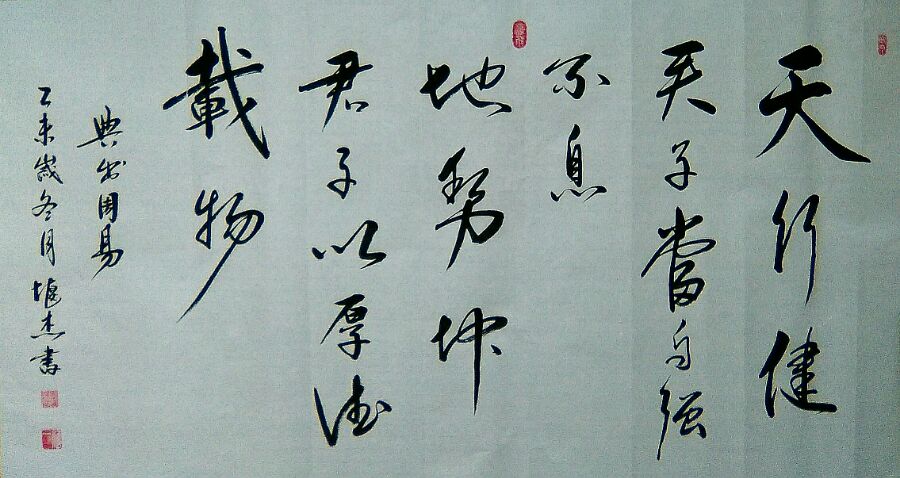 天行健
天子當自强
不息
地势坤
君子以厚德
載物
典出周易
乙未歲冬月堰杰書